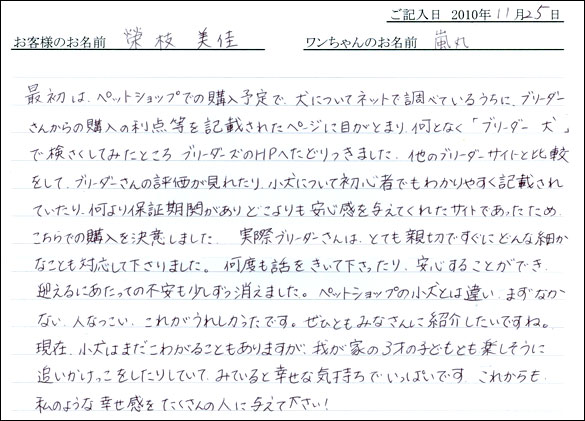 ご記入日 2010年11月25日
お客様のお名前 榮枝 美佳 ワンちゃんのお名前 嵐丸
最初は、ペットショップでの購入予定で、犬についてネットで調べているうちに、ブリーダー
さんからの購入の利点等を記載されたページに目がとまり、何となく「ブリーダー 犬」
で検さくしてみたところ ブリーダーズのHPへたどりつきました。他のブリーダーサイトと比較
をして、ブリーダーさんの評価が見れたり、小犬について初心者でもわかりやすく記載され
ていたり、何より保証期間がありどこよりも安心感を与えてくれたサイトであったため、
こちらでの購入を決意しました。 実際ブリーダーさんは、とても親切ですぐにどんな細か
なことも対応して下さりました。何度も話をきいて下さったり、安心することができ、
迎えるにあたっての不安も少しずつ消えました。ペットショップの小犬とは違い、まずなか
ない、人なつっこい、これがうれしかったです。ぜひともみなさんに紹介したいですね。
現在、小犬はまだこわがることもありますが、我が家の3才の子どもとも楽しそうに
追いかけっこをしたりしていて、みていると幸せな気持ちでいっぱいです。これからも、
私のような幸せ感をたくさんの人に与えて下さい!